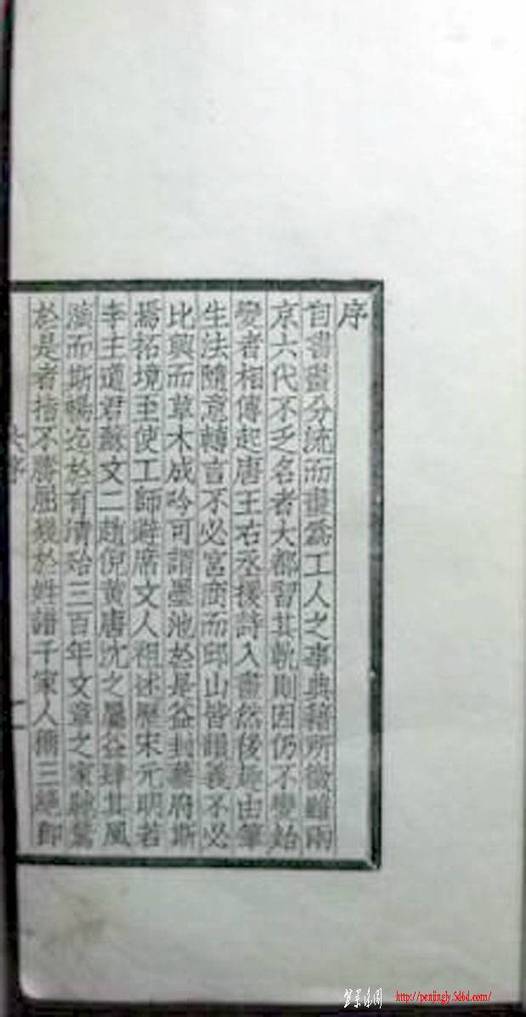 序
自書畫分流而畫爲工人之事典籍所徵雖兩
京六代不乏名者大都習其軌則因仍不變始
變者相傳起唐王右丞援詩入畫然後趣由筆
生法隨意轉言不必宮商而邱山皆韻義不必
比興而草木成吟可謂墨池於是益封藝府斯
焉拓境至使工師避席文人祖述歷宋元明若
李主道君蘇文二趙倪黃唐沈之屬益肆其風
演而斯暢迄於有清殆三百年文章之家馳騖
於是者指不勝屈幾於姓譜千家人三絕
序
一
http://penjingly.5d6d.com/